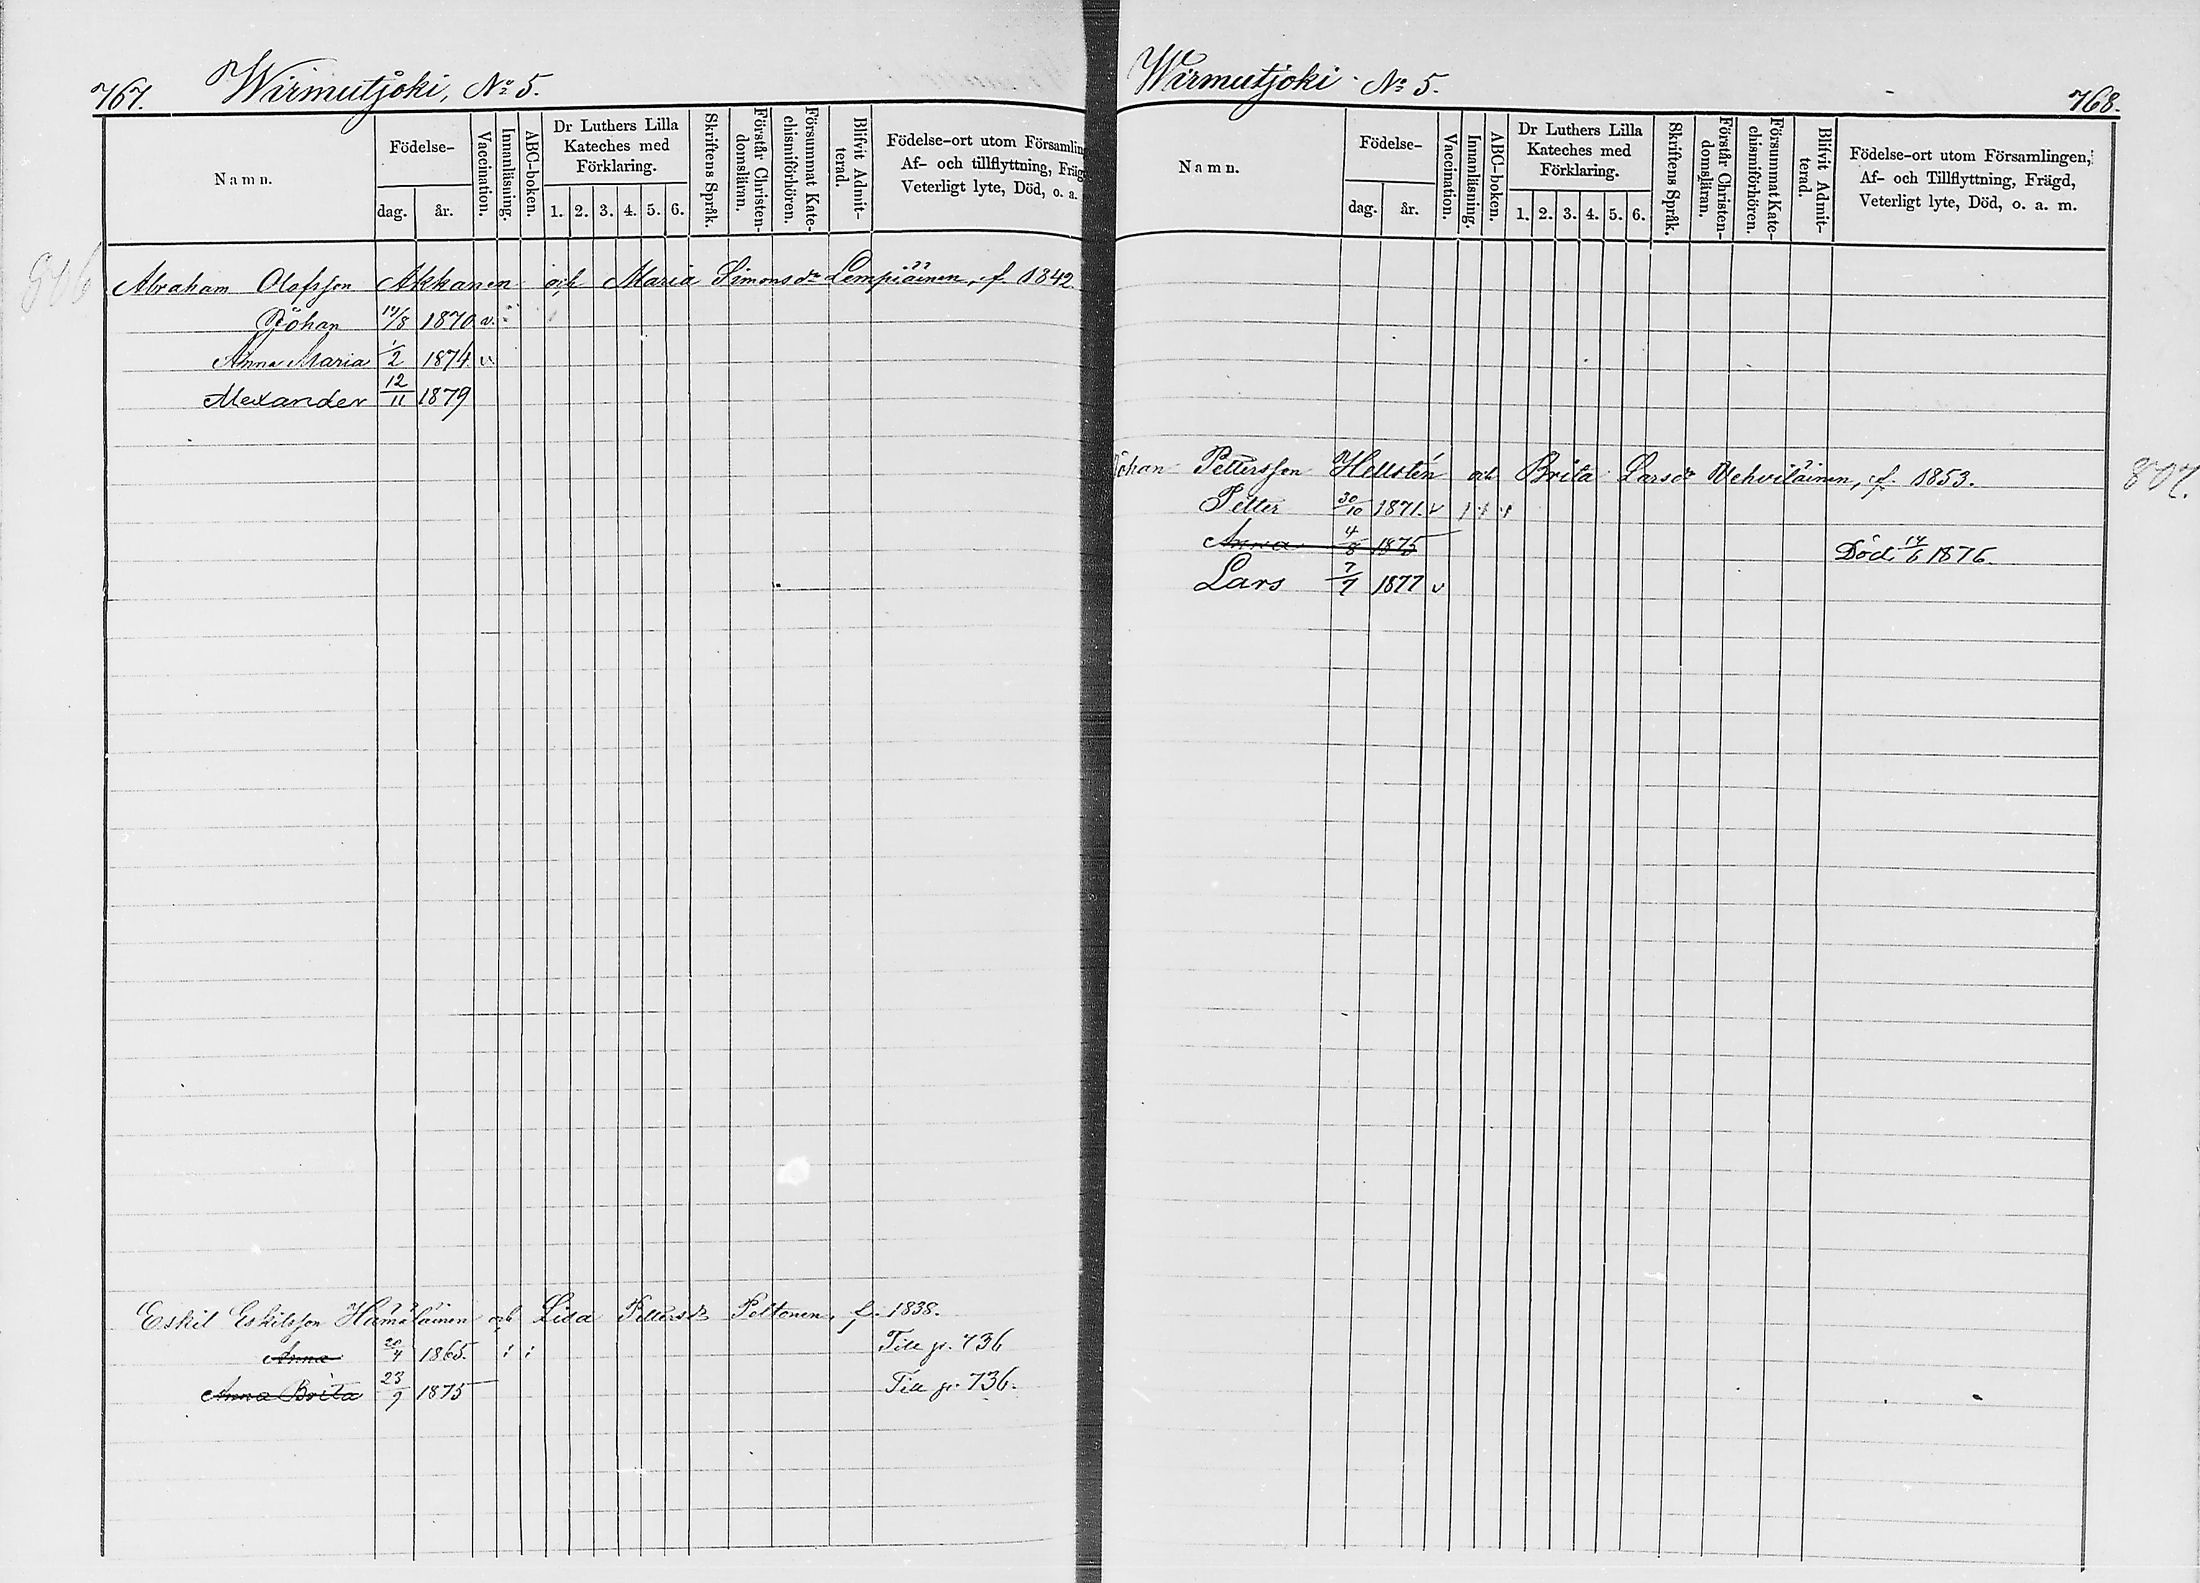 767. Wirmutjoki, No 5.
Namn.
Födelse-
dag. år.
Vaccination.
Innanläsning.
ABC-boken.
Dr Luthers Lilla
Kateches med
Förklaring.
1. 2. 3. 4. 5. 6.
Skriftens Språk.
Förstår Christen-
domslärnn.
Försummat Kate-
chismiförhören.
Blifvit Admit-
terad.
Födelse-ort utom Församlin
Af- och tillflyttning, Fräg
Veterligt lyte, Död, o. a.
806
Abraham Olofsson Akkanen och Maria Simonsdr Lempiäinen, f. 1842
Johan 17/8 1870 v.
Anna Maria 1/2 1874 v.
Alexander 12/11 1879
Eskil Eskilsson Hämäläinen och Lisa Pettersdr Peltonen, f. 1838.
Anna 20/4 1865. Till p. 736
Anna Brita 23/9 1875 Till p. 736.
Wirmutjoki No 5. 768.
Namn.
Födelse-
dag. år.
Vaccination.
Innanläsning.
ABC-boken.
Dr Luthers Lilla
Kateches med
Förklaring.
1. 2. 3. 4. 5. 6.
Skriftens Språk.
Förstår Christen-
domsläran.
Försummat Kate-
chismiförhören.
Blifvit Admit-
terad.
Födelse-ort utom Församlingen,
Af- och Tillflyttning, Frägd,
Veterligt lyte, Död, o. a. m.
Johan Pettersson Hellstén och Brita Larsdr Wehviläinen, f. 1853. 807.
Petter 30/10 1871. v
Anna 4/8 1875 Död 14/6 1876.
Lars 7/7 1877 v